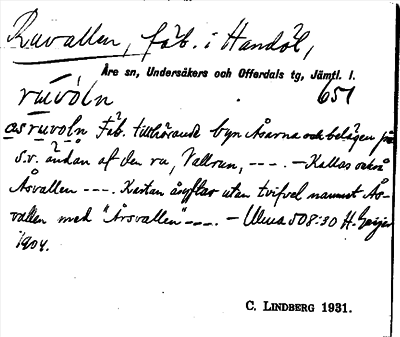 Ruvallen, fäb. i Handöl,
Åre sn, Undersåkers och Offerdals tg, Jämtl. l.
ruvoln 651
asruvoln Fäb. tillhörande byn Åsarna och belägen på
s.v. ändan af den va, Vallrun, ---. - Kallas också
Åsvallen ---. Kartan åsyftar utan tvifvel namnet Ås-
vallen med "Årsvallen" ---. - Ulma 508:30 H. Geijer
1904.
C. LINDBERG 1931.